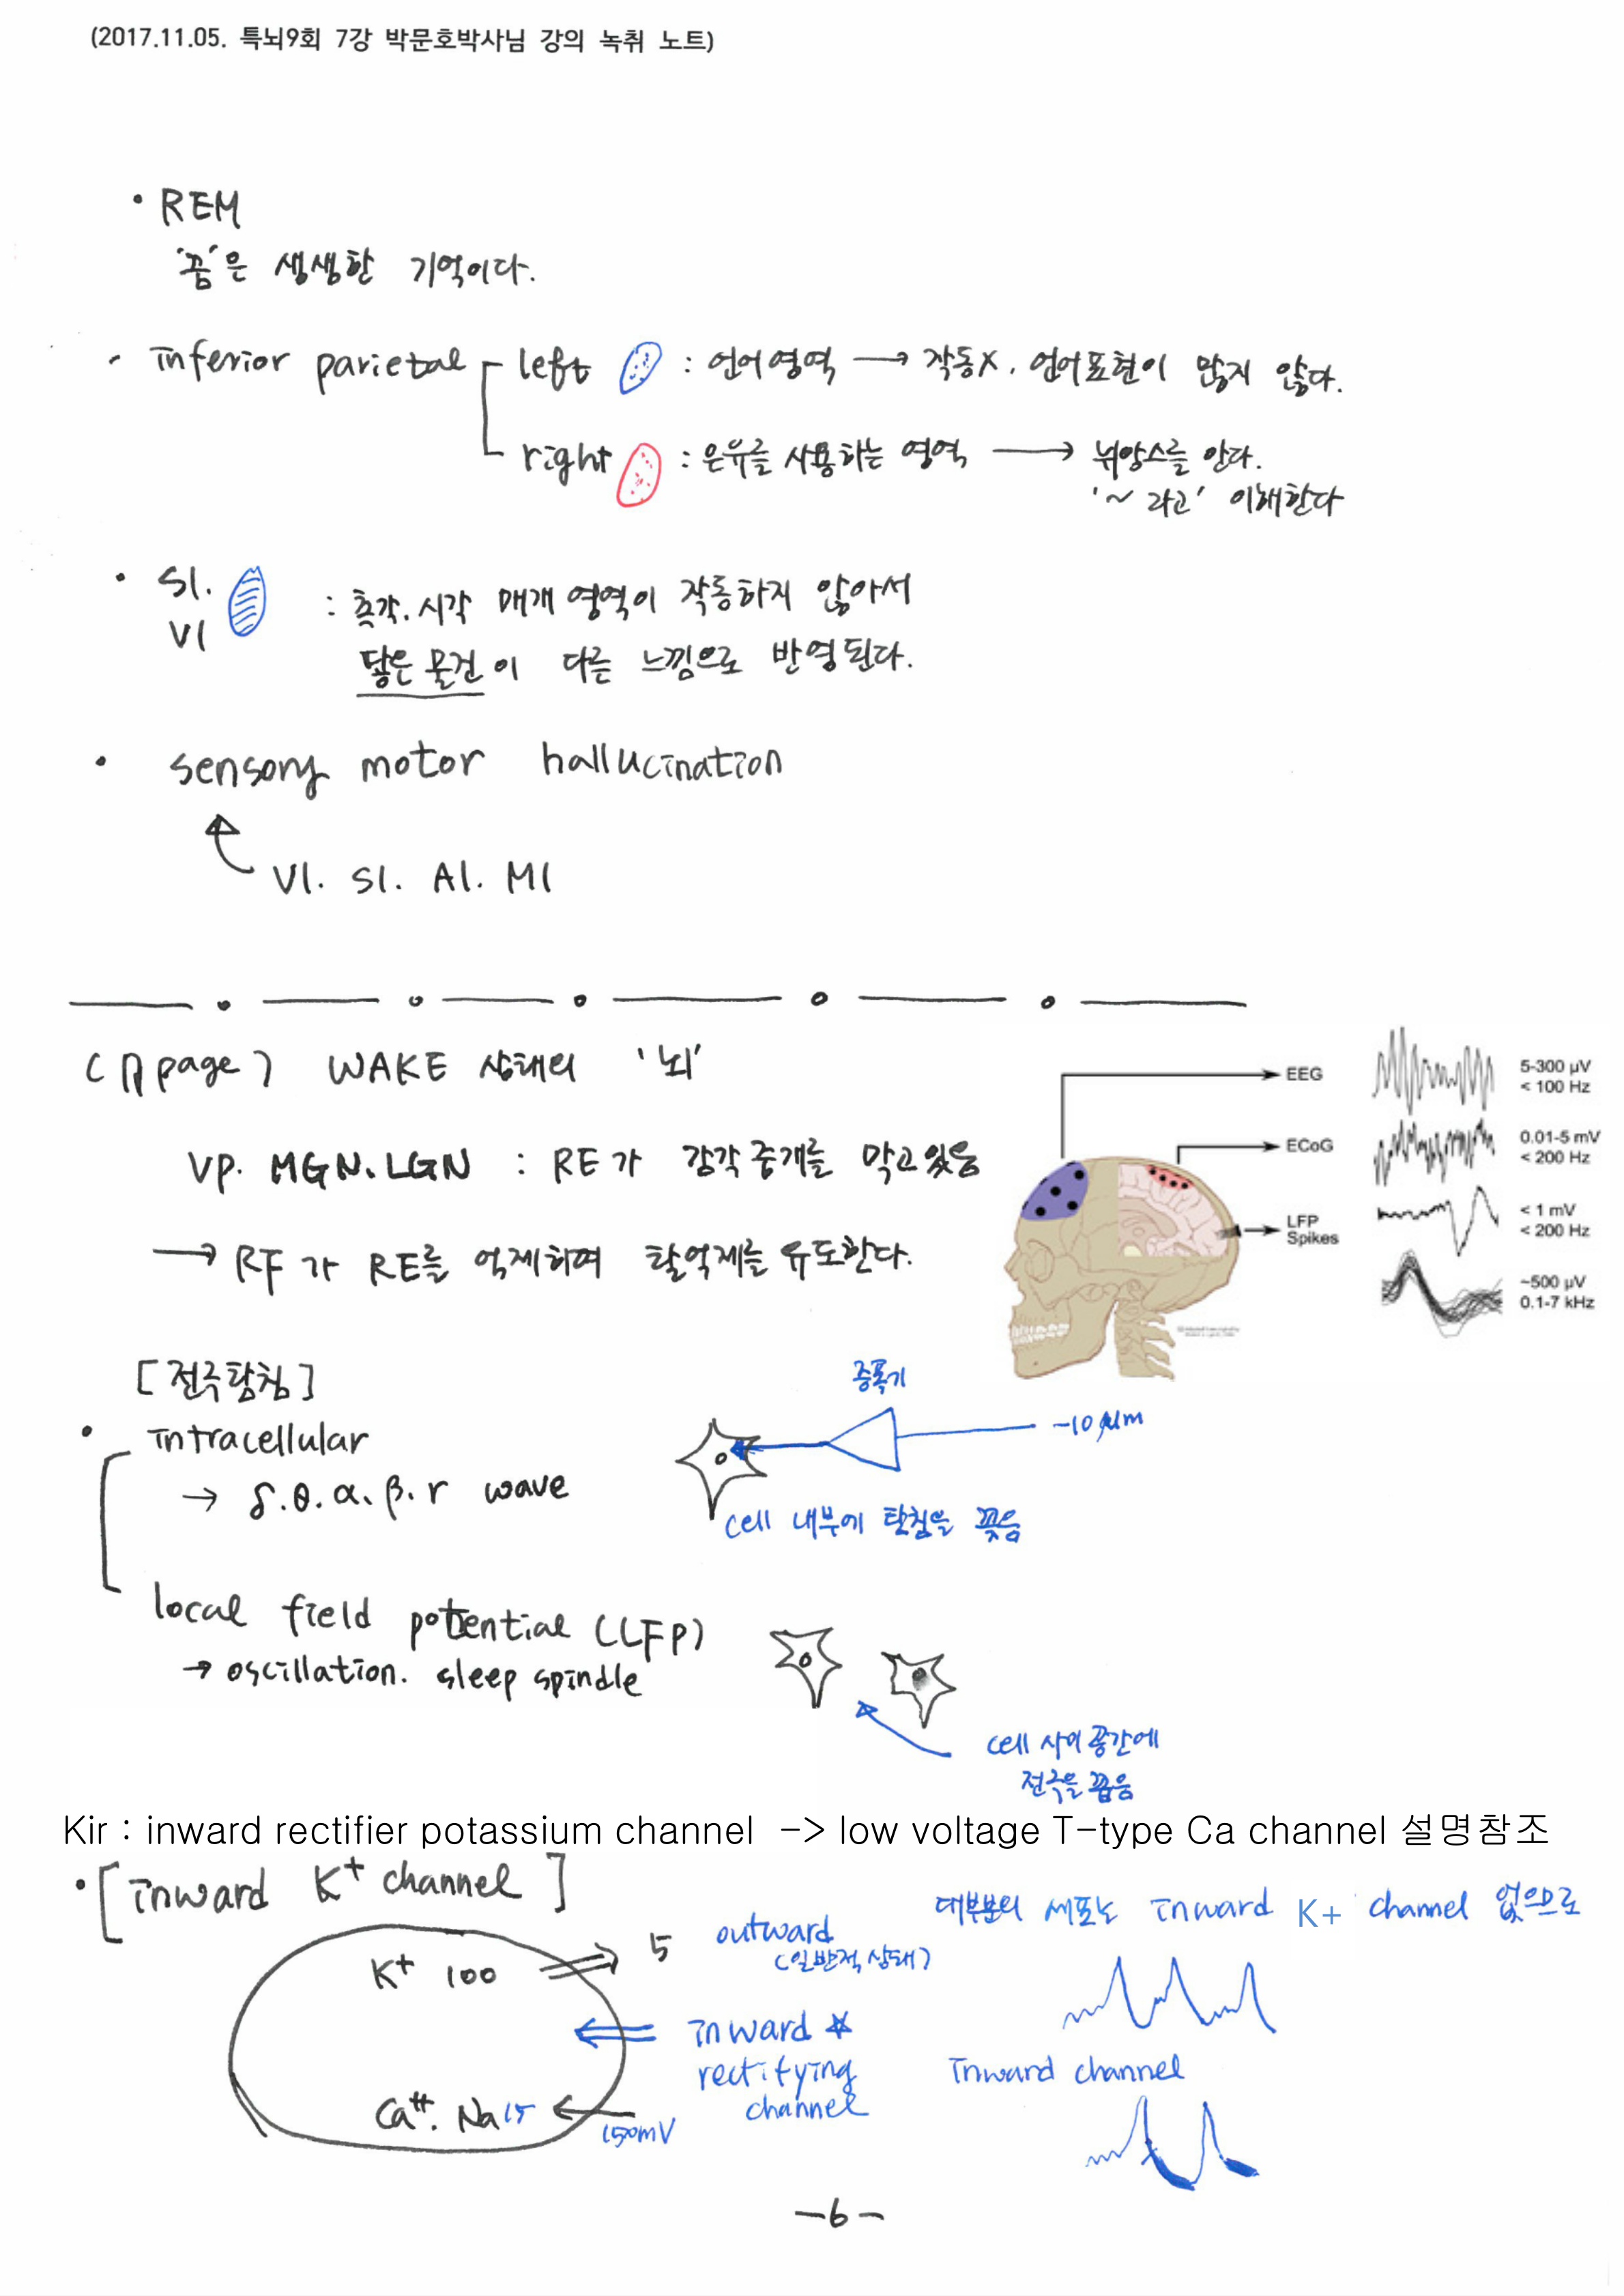 (2017.11.05. 특뇌9회 7강 박문호박사님 강의 녹취 노트)
• REM
'꿈'은 생생한 기억이다.
• inferior parietal
left : 언어영역 → 작동X. 언어표현이 많지 않다.
right : 은유를 사용하는 영역 → 뉘앙스를 안다.
'~ 라고' 이해한다
• S1.
V1
: 촉각.시각 매개 영역이 작동하지 않아서
닿은 물건이 다른 느낌으로 반영된다.
• sensory motor hallucination
V1. S1. A1. M1
page) WAKE 상태의 '뇌'
VP. MGN. LGN : RE가 감각중개를 막고있음
→ RF가 RE를 억제하며 탈억제를 유도한다.
EEG
5-300 µV
< 100 Hz
ECoG
0.01-5 mV
< 200 Hz
LFP
Spikes
< 1 mV
< 200 Hz
~500 µV
0.1-7 kHz
[전극탐침]
• intracellular
→ δ.θ.α.β.r wave
증폭기
~10 µm
cell 내부에 탐침을 꽂음
local field potential (LFP)
→ oscillation. sleep spindle
cell 사이 공간에
전극을 꼽음
Kir : inward rectifier potassium channel -> low voltage T-type Ca channel 설명참조
• [inward K+ channel]
K+ 100
5
outward
(일반적 상태)
inward ☆
rectifying
channel
Ca++. Na 15
150mV
대부분의 세포는 inward K+ channel 없으므로
Inward channel
-6-